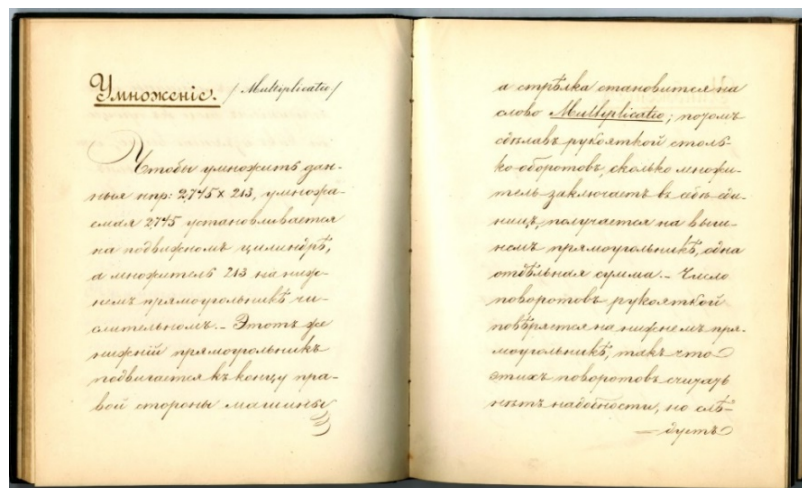 Умноженіе. /Multiplicatio/
Чтобы умножить дан-
ныя нпр: 2,745 × 213, умножа-
емая 2,745 установливается
на подвижномъ цилиндрѣ,
а множитель 213 на ниж-
немъ прямоугольникѣ чи-
слительномъ. — Этотъ же
нижній прямоугольникъ
подвигается къ концу пра-
вой стороны машины
а стрѣлка становится на
слово Multiplicatio; потомъ
сдѣлавъ рукояткой столь-
ко оборотовъ, сколько множи-
тель заключаетъ въ себѣ еди-
ницъ, получается на
прямоугольникѣ, одна
отдѣльная сумма. — Число
поворотовъ рукояткой
повѣряется на нижнемъ пря-
моугольникѣ, такъ что
этихъ поворотовъ считать
нѣтъ надобности, но слѣ-
— дуетъ